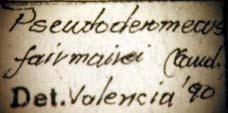 Pseudoderomecus
fairmairei (Laud.
Det. Valencia '90